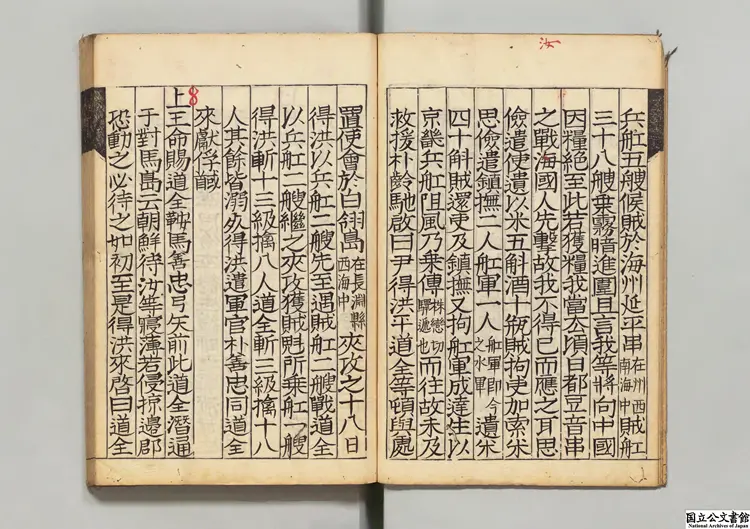 汝
兵舩五艘候賊於海州延平串在州西南海中賊舩
三十八艘乗霧暗進圍且言我等將向中國
因糧絶至此若獲糧我當去頃日都豆音串
之戰海國人先擊故我不得已而應之耳思
儉遣使遺以米五斛酒十瓶賊拘吏加索米
思儉遣鎮撫二人舩軍一人舩軍即今之水軍遺米
四十斛賊還吏及鎮撫又拘舩軍成達生以
京畿兵舩阻風乃乗傳株戀切驛遞也而往故未及
救援朴齡馳啟曰尹得洪平道全等頓與處
置使會於白翎島在長淵縣西海中夾攻之十八日
得洪以兵舩二艘先至遇賊舩二艘戰道全
以兵舩二艘繼之夾攻獲賊魁所乗舩一艘
得洪斬十三級擒八人道全斬三級擒十八
人其餘皆溺死得洪遣軍官朴善忠同道全
來獻俘馘
上王命賜道全鞍馬善忠弓矢前此道全潛通
于對馬島云朝鮮待汝等寖薄若侵掠邊郡
恐動之必待之如初至是得洪來啓曰道全
国立公文書館
National Archives of Japan